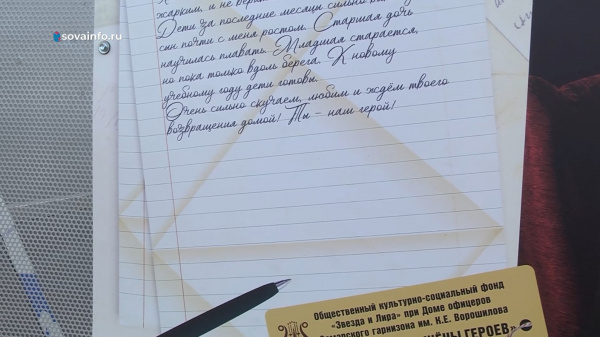 sovainfo.ru
жарким, и не
Дети за последние месяцы сильно
сын почти с меня ростом. Старшая дочь
научилась плавать. Младшая старается,
но пока только вдоль берега. К новому
учебному году дети готовы.
Очень сильно скучаем, любим и ждём твоего
возвращения домой! Ты – наш герой!
Общественный культурно-социальный фонд
«Звезда и Лира» при Доме офицеров
Самарского гарнизона им. К.Е. Ворошилова
ЖЁНЫ ГЕРОЕВ»